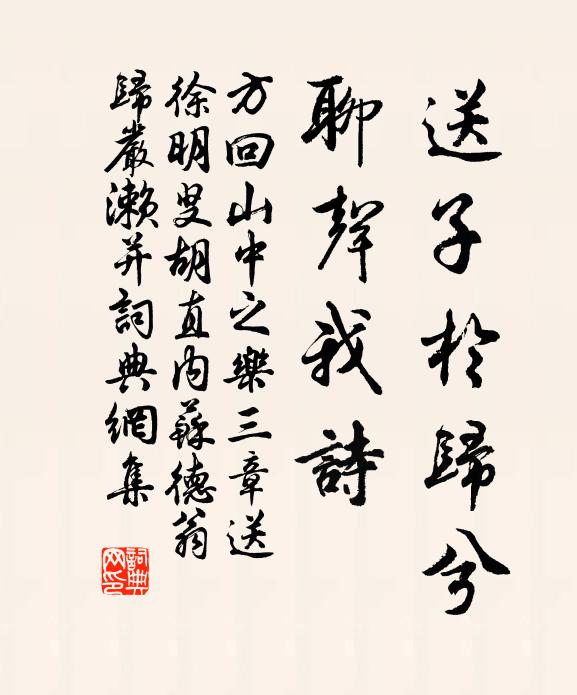 送子於歸兮
聊聲我詩
方回山中之樂三章送
徐明叟胡直內蘇德翁
歸嚴瀨并詞典網集
詞典网印